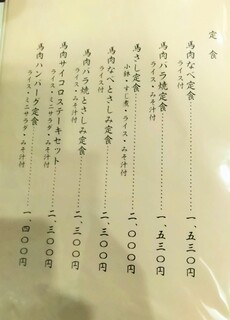 定食
馬肉なべ定食
ライス付
一、五三〇円
馬肉バラ焼定食
ライス・みそ汁付
一、五三〇円
馬さし定食
小鉢・すじ煮・ライス・みそ汁付
二、〇〇〇円
馬肉なべとさしみ定食
ライス付
二、三〇〇円
馬肉バラ焼とさしみ定食
ライス・みそ汁付
二、三〇〇円
馬肉サイコロステーキセット
ライス・ミニサラダ・みそ汁付
二、三〇〇円
馬肉ハンバーグ定食
ライス・ミニサラダ・みそ汁付
一、四〇〇円